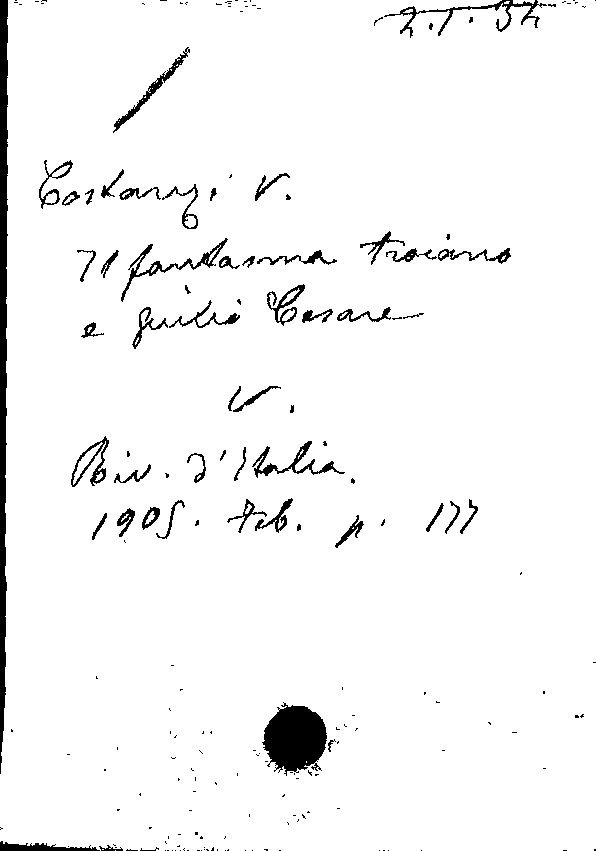 2.1.34
Costanzi V.
Il fantasma troiano
e giulio Cesare
V.
Riv. d'Italia.
1905. Feb. p. 177